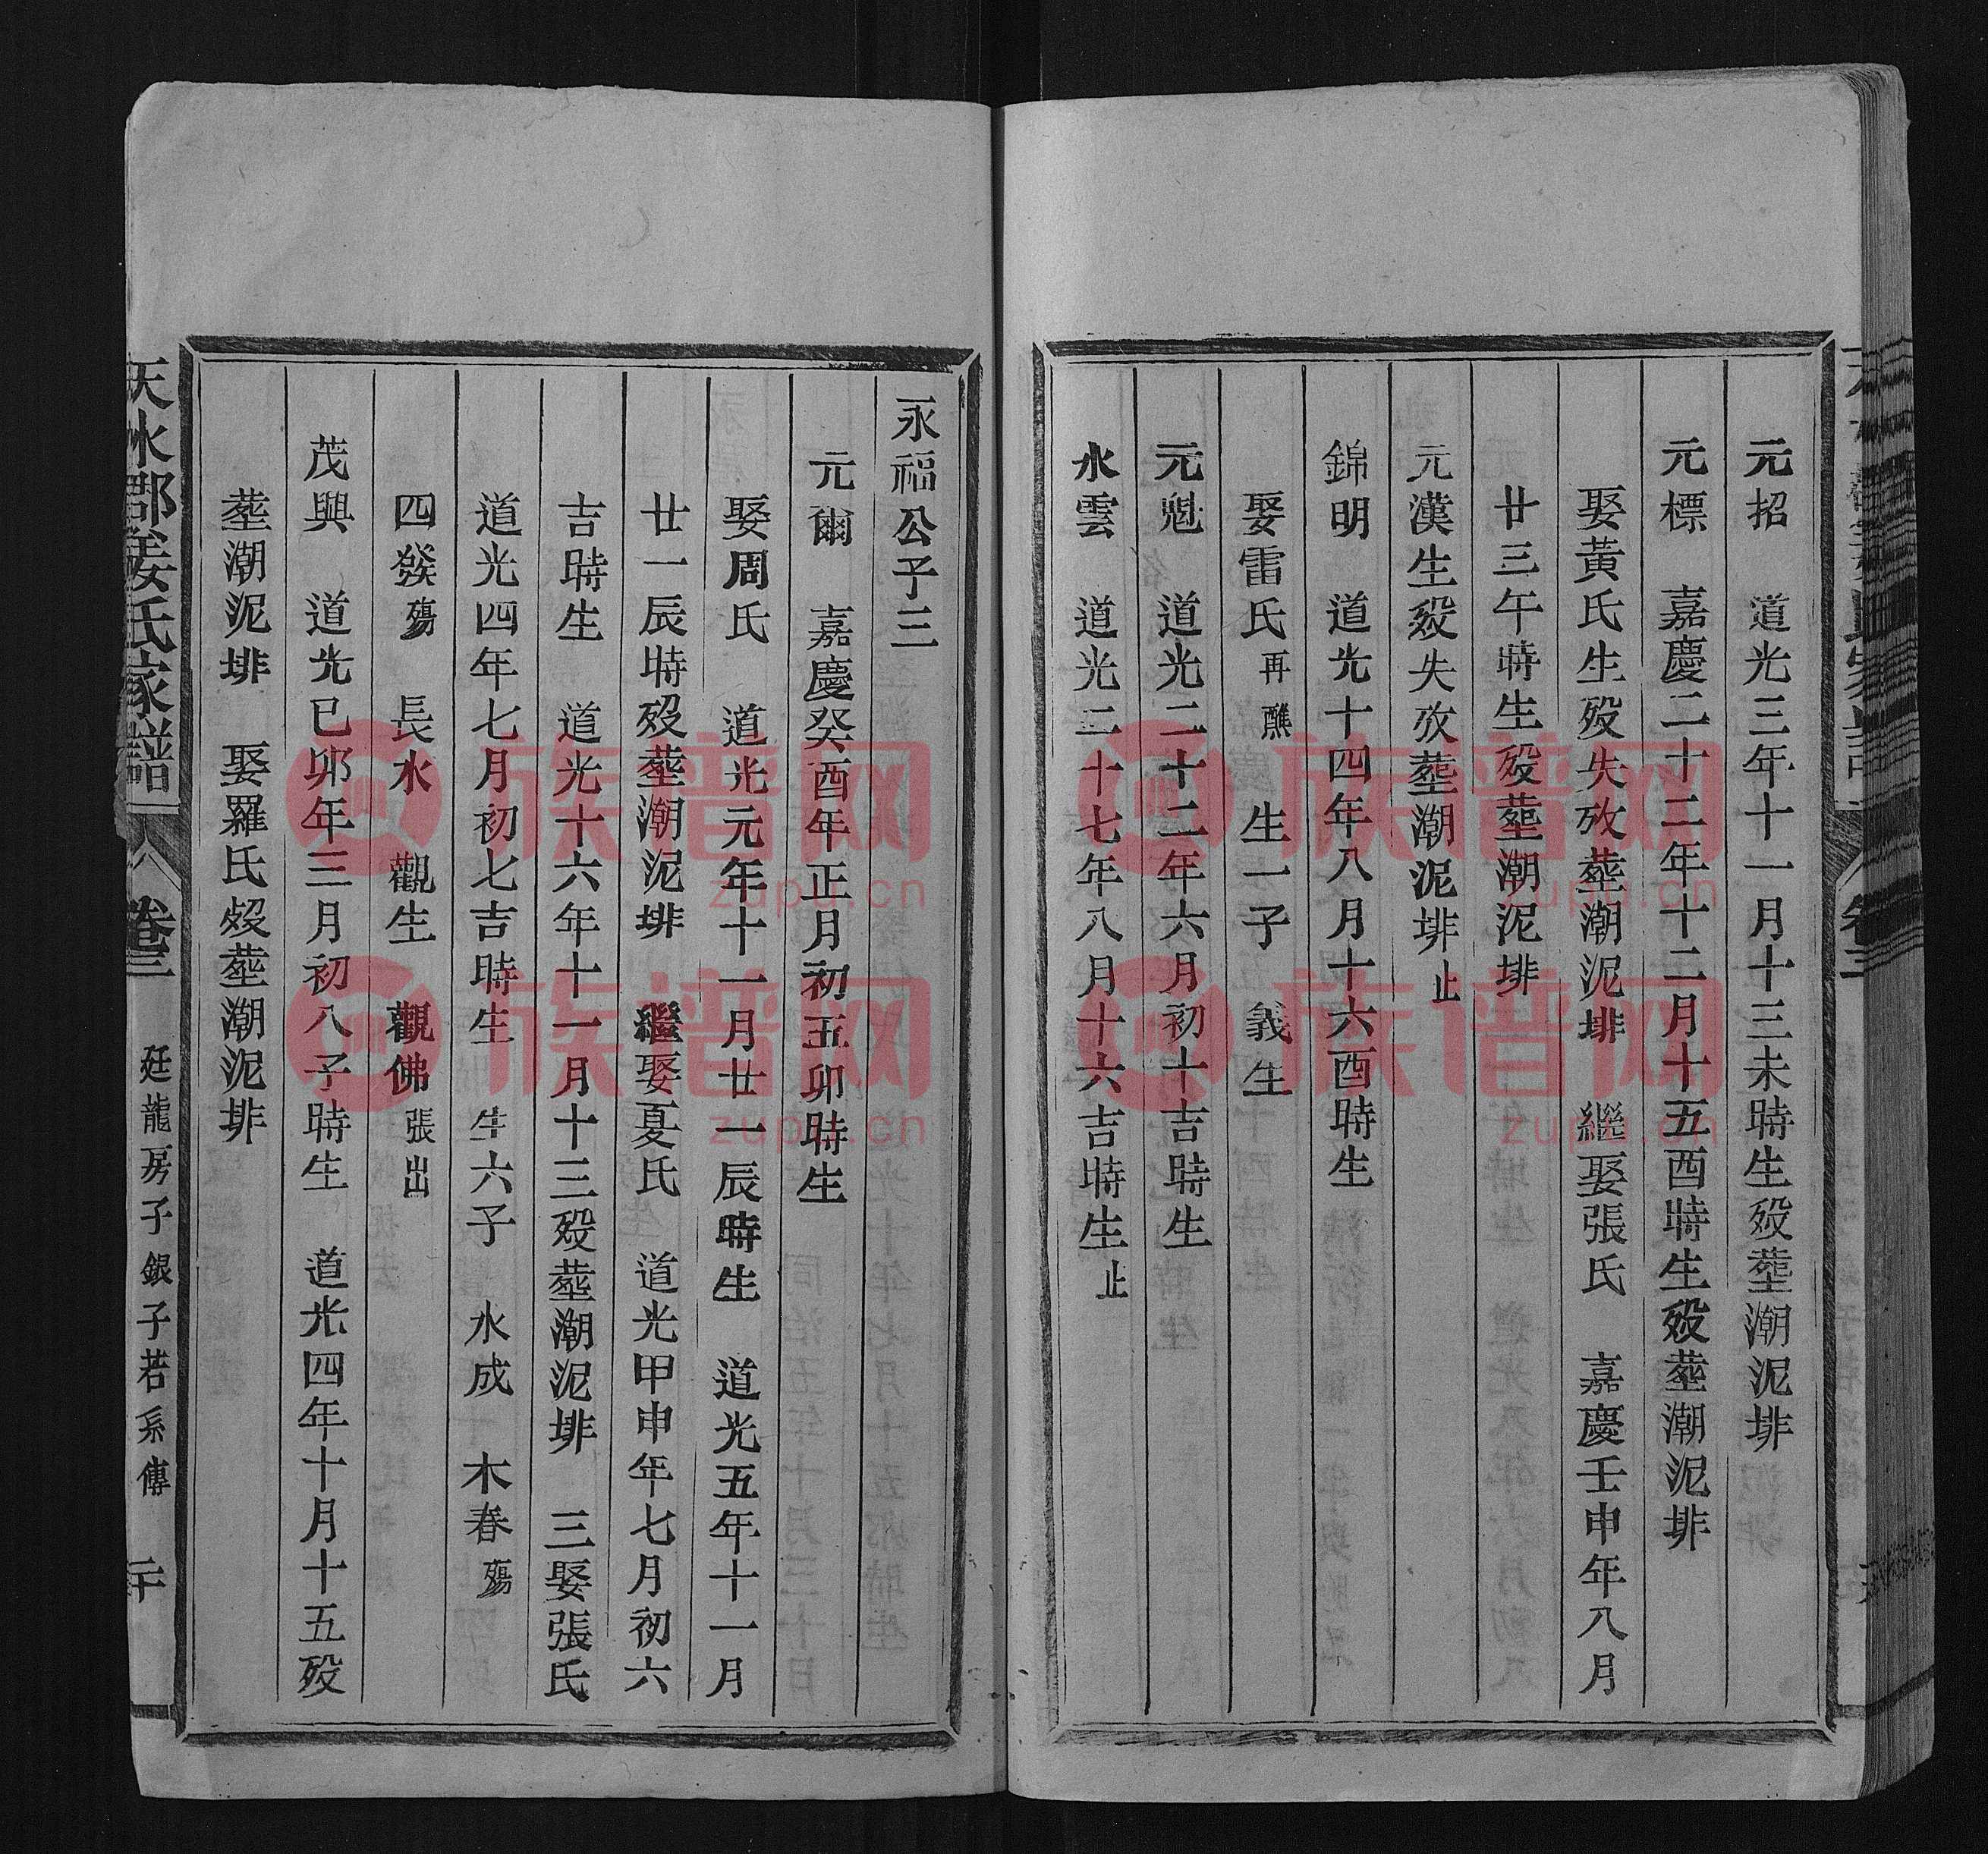 元招　道光三年十一月十三未時生歿塟潮泥排
元標　嘉慶二十二年十二月十五酉時生歿塟潮泥排
娶黃氏生歿失攷塟潮泥排　繼娶張氏　嘉慶壬申年八月
廿三午時生歿塟潮泥排
元漢生歿失攷塟潮泥排止
錦明　道光十四年八月十六酉時生
娶雷氏再醮　生一子　義生
元魁　道光二十二年六月初十吉時生
水雲　道光二十七年八月十六吉時生止
永福公子三
元爾　嘉慶癸酉年正月初五卯時生
娶周氏　道光元年十一月廿一辰時生　道光五年十一月
廿一辰時歿塟潮泥排　繼娶夏氏　道光甲申年七月初六
吉時生　道光十六年十一月十三歿塟潮泥排　三娶張氏
道光四年七月初七吉時生　生六子　水成　木春殤
四發殤　長水　觀生　觀佛張出
茂興　道光已卯年三月初八子時生　道光四年十月十五歿
塟潮泥排　娶羅氏歿塟潮泥排
天水郡姜氏家譜　卷三　廷龍房子銀子若系傳　二十
族谱网
zupu.cn
族谱网
zupu.cn
族谱网
zupu.cn
族谱网
zupu.cn